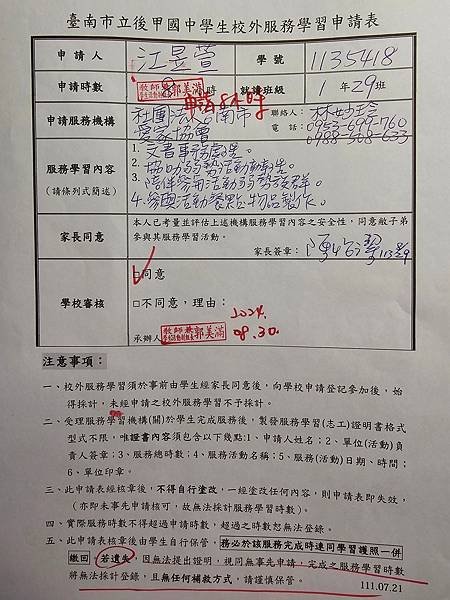 臺南市立後甲國中學生校外服務學習申請表
申請人 江昱萱 學號 1135418
申請時數 時 就讀班級 1年29班
教師兼 郭美滿
申請服務機構 社團法人台南市
愛家協會
聯絡人：林妙玲
電話：0953-699-760
服務學習內容
(請條列式簡述)
1. 文書事務處理。
2. 協助弱勢活動勸告。
3. 陪伴勞用活動弱勢族群。
4. 參團活動餐點.物品製作。
家長同意
本人已考量並評估上述機構服務學習內容之安全性，同意敝子弟
參與其服務學習活動。
家長簽章： 113.8.29
學校審核
□同意
□不同意，理由：
2024.
08.30.
承辦人 教師兼 郭美滿
注意事項：
一、校外服務學習須於事前由學生經家長同意後，向學校申請登記參加後，始
得採計，未經申請之校外服務學習不予採計。
二、受理服務學習機構(關)於學生完成服務後，製發服務學習(志工)證明書格式
型式不限，唯證書內容須包含以下幾點:1、申請人姓名；2、單位(活動)負
責人簽章；3、服務總時數；4、服務活動名稱；5、服務(活動)日期、時間；
6、單位印章。
三、此申請表經核章後，不得自行塗改，一經塗改任何內容，則申請表即失效，
(亦即未事先申請核可，故無法採計服務學習時數)。
四、實際服務時數不得超過申請時數，超過之時數恕無法登錄。
五、此申請表核章後由學生自行保管，務必於該服務完成時連同學習護照一併
繳回 若遺失，因無法提出證明，視同無事先申請，完成之服務學習時數
將無法採計登錄，且無任何補救方式，請謹慎保管。
111.07.21